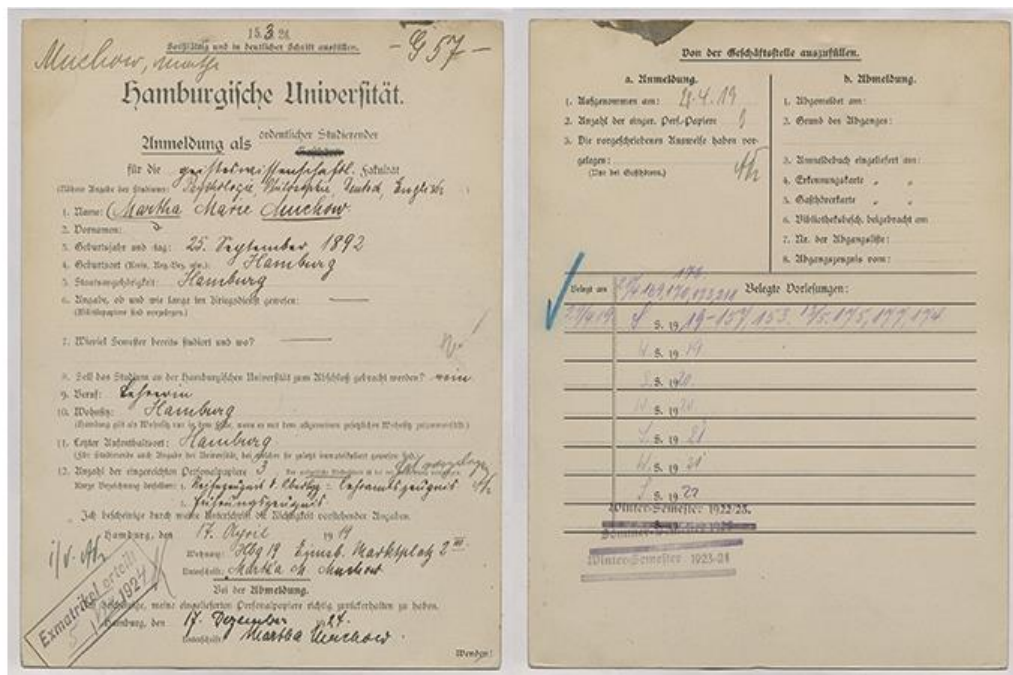 15.3.24
Sorgfältig und in deutscher Schrift ausfüllen.
Muchow, Martha
- G 57 -
Hamburgische Universität.
Anmeldung als ordentlicher Studierender
für die geisteswissenschaftl. Fakultät
Psychologie, Philosophie, Deutsch, Englisch
1. Name: Martha Marie Muchow
2. Vornamen:
3. Geburtsjahr und -tag: 25. September 1892
4. Geburtsort Hamburg
5. Staatsangehörigkeit: Hamburg
6. Angabe, ob und wie lange im Kriegsdienst gewesen:
(Militärpapiere sind vorzulegen.)
7. Wieviel Semester bereits studiert und wo?
8. Soll das Studium an der Hamburgischen Universität zum Abschluß gebracht werden? nein
9. Beruf: Lehrerin
10. Wohnsitz: Hamburg
11. Letzter Aufenthaltsort: Hamburg
12. Anzahl der eingereichten Personalpapiere 3
Kurze Bezeichnung derselben: 1. Reifezeugnis d. Oberlyz. 2. Lehramtszeugnis
3. Führungszeugnis
Ich bescheinige durch meine Unterschrift die Richtigkeit vorstehender Angaben.
Hamburg, den 17. April 1919
Wohnung: Hbg 19 Eimsb. Marktplatz 2 III
Unterschrift: Martha M. Muchow
Exmatrikel erteilt
1924
Bei der Abmeldung.
Ich bescheinige, meine eingelieferten Personalpapiere richtig zurückerhalten zu haben.
Hamburg, den 17. Dezember 1924.
Unterschrift: Martha Muchow
Wenden!
Von der Geschäftsstelle auszufüllen.
a. Anmeldung.
1. Aufgenommen am: 28.4.19
2. Anzahl der einger. Pers.-Papiere 3
3. Die vorgeschriebenen Ausweise haben vorgelegen:
(Nur bei Gasthörern.)
b. Abmeldung.
1. Abgemeldet am:
2. Grund des Abganges:
3. Anmeldebuch eingeliefert am:
4. Erkennungskarte " "
5. Gasthörerkarte " "
6. Bibliotheksbesch. beigebracht am
7. Nr. der Abgangsliste:
8. Abgangszeugnis vom:
Belegt am
Belegte Vorlesungen:
S. S. 19 - 157, 153. 175, 177, 174
W. S. 19 19
S. S. 19 20.
W. S. 19 20
S. S. 19 21
W. S. 19 21
S. S. 19 22
Winter-Semester 1922/23.
Sommer-Semester 1923
Winter-Semester 1923-24